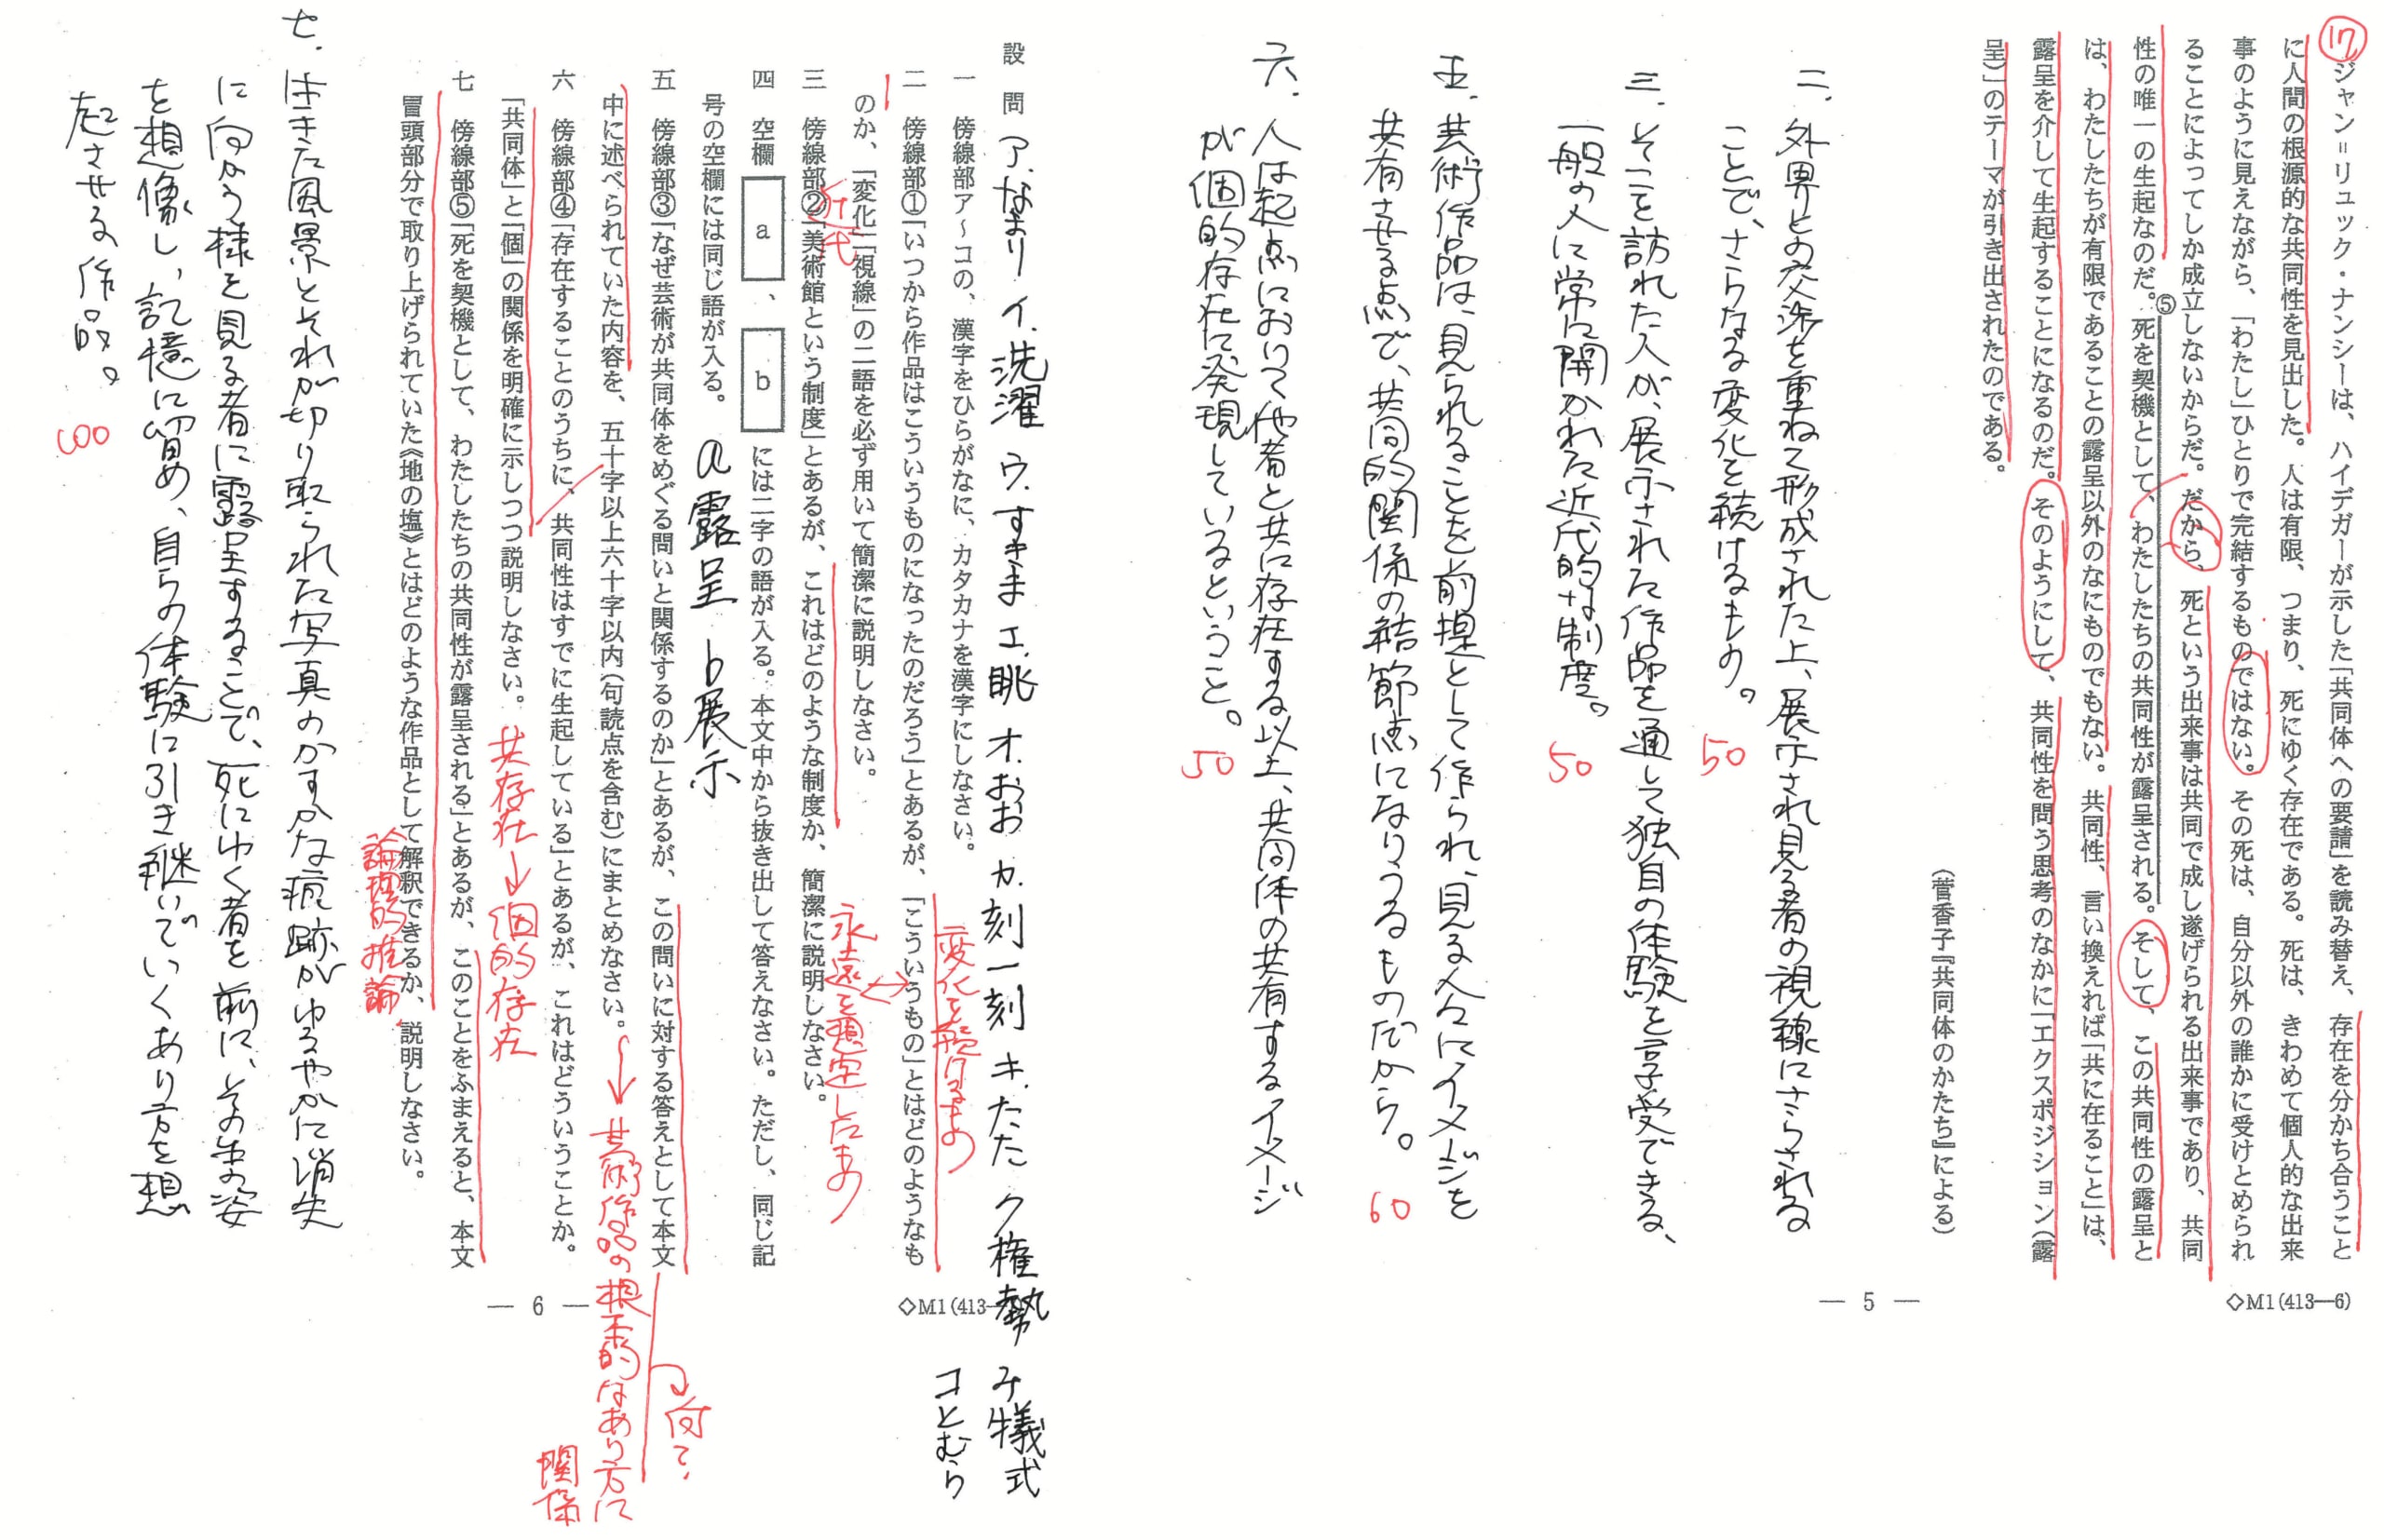 ⑰
ジャン＝リュック・ナンシーは、ハイデガーが示した「共同体への要請」を読み替え、存在を分かち合うこと
に人間の根源的な共同性を見出した。人は有限、つまり、死にゆく存在である。死は、きわめて個人的な出来
事のように見えながら、「わたし」ひとりで完結するものではない。その死は、自分以外の誰かに受けとめられ
ることによってしか成立しないからだ。だから、死という出来事は共同で成し遂げられる出来事であり、共同
性の唯一の生起なのだ。⑤死を契機として、わたしたちの共同性が露呈される。そして、この共同性の露呈と
は、わたしたちが有限であることの露呈以外のなにものでもない。共同性、言い換えれば「共に在ること」は、
露呈を介して生起することになるのだ。そのようにして、共同性を問う思考のなかに「エクスポジション（露
呈）」のテーマが引き出されたのである。
（菅香子『共同体のかたち』による）
二、外界との交渉を重ねて形成された上、展示され見る者の視線にさらされる
ことで、さらなる変化を続けるもの。
50
三、そこを訪れた人が、展示された作品を通して独自の体験を享受できる、
一般の人に常に開かれた近代的な制度。
50
五、芸術作品は、見られることを前提として作られ、見る人々にイメージを
共有させる点で、共同的関係の結節点になりうるものだから。
60
六、人は起点において他者と共に存在する以上、共同体の共有するイメージ
が個的存在に発現しているということ。
50
― 5 ―
◇M1(413―6)
設問
ア.なまり イ.洗濯 ウ.すきま エ.眺 オ.おお カ.刻一刻 キ.たた ク権勢 み犠式
コとむら
一 傍線部ア～コの、漢字をひらがなに、カタカナを漢字にしなさい。
二 傍線部①「いつから作品はこういうものになったのだろう」とあるが、「こういうもの」とはどのようなも
のか、「変化」「視線」の二語を必ず用いて簡潔に説明しなさい。
変化を続けるもの
永遠を想定したもの
三 傍線部②「美術館という制度」とあるが、これはどのような制度か、簡潔に説明しなさい。
近代
四 空欄 a 、 b には二字の語が入る。本文中から抜き出して答えなさい。ただし、同じ記
号の空欄には同じ語が入る。
a露呈 b展示
五 傍線部③「なぜ芸術が共同体をめぐる問いと関係するのか」とあるが、この問いに対する答えとして本文
中に述べられていた内容を、五十字以上六十字以内（句読点を含む）にまとめなさい。
→芸術作品の根本的なあり方に
関係
何で、
六 傍線部④「存在することのうちに、共同性はすでに生起している」とあるが、これはどういうことか。
「共同体」と「個」の関係を明確に示しつつ説明しなさい。
共存在→個的存在
七 傍線部⑤「死を契機として、わたしたちの共同性が露呈される」とあるが、このことをふまえると、本文
冒頭部分で取り上げられていた《地の塩》とはどのような作品として解釈できるか、説明しなさい。
論理的推論
七.はきた風景とそれが切り取られた写真のかすかな痕跡がゆるやかに消失
に向かう様を見る者に露呈することで、死にゆく者を前に、その生の姿
を想像し、記憶に留め、自らの体験に引き継いでいくあり方を想
起させる作品。
100
― 6 ―
◇M1(413―